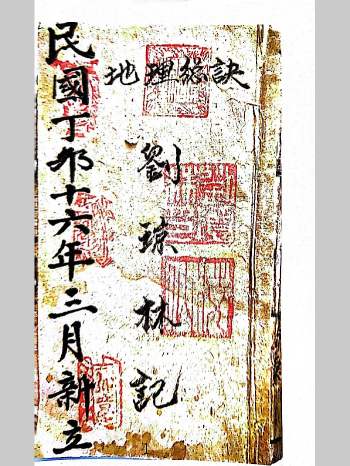 地理総訣
劉琼林記
民國丁卯十六年三月新立